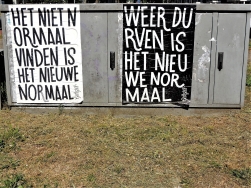 HET NIET N
ORMAAL
VINDEN IS
HET NIEUWE
NORMAAL
WEER DU
RVEN IS
HET NIEU
WE NOR
MAAL